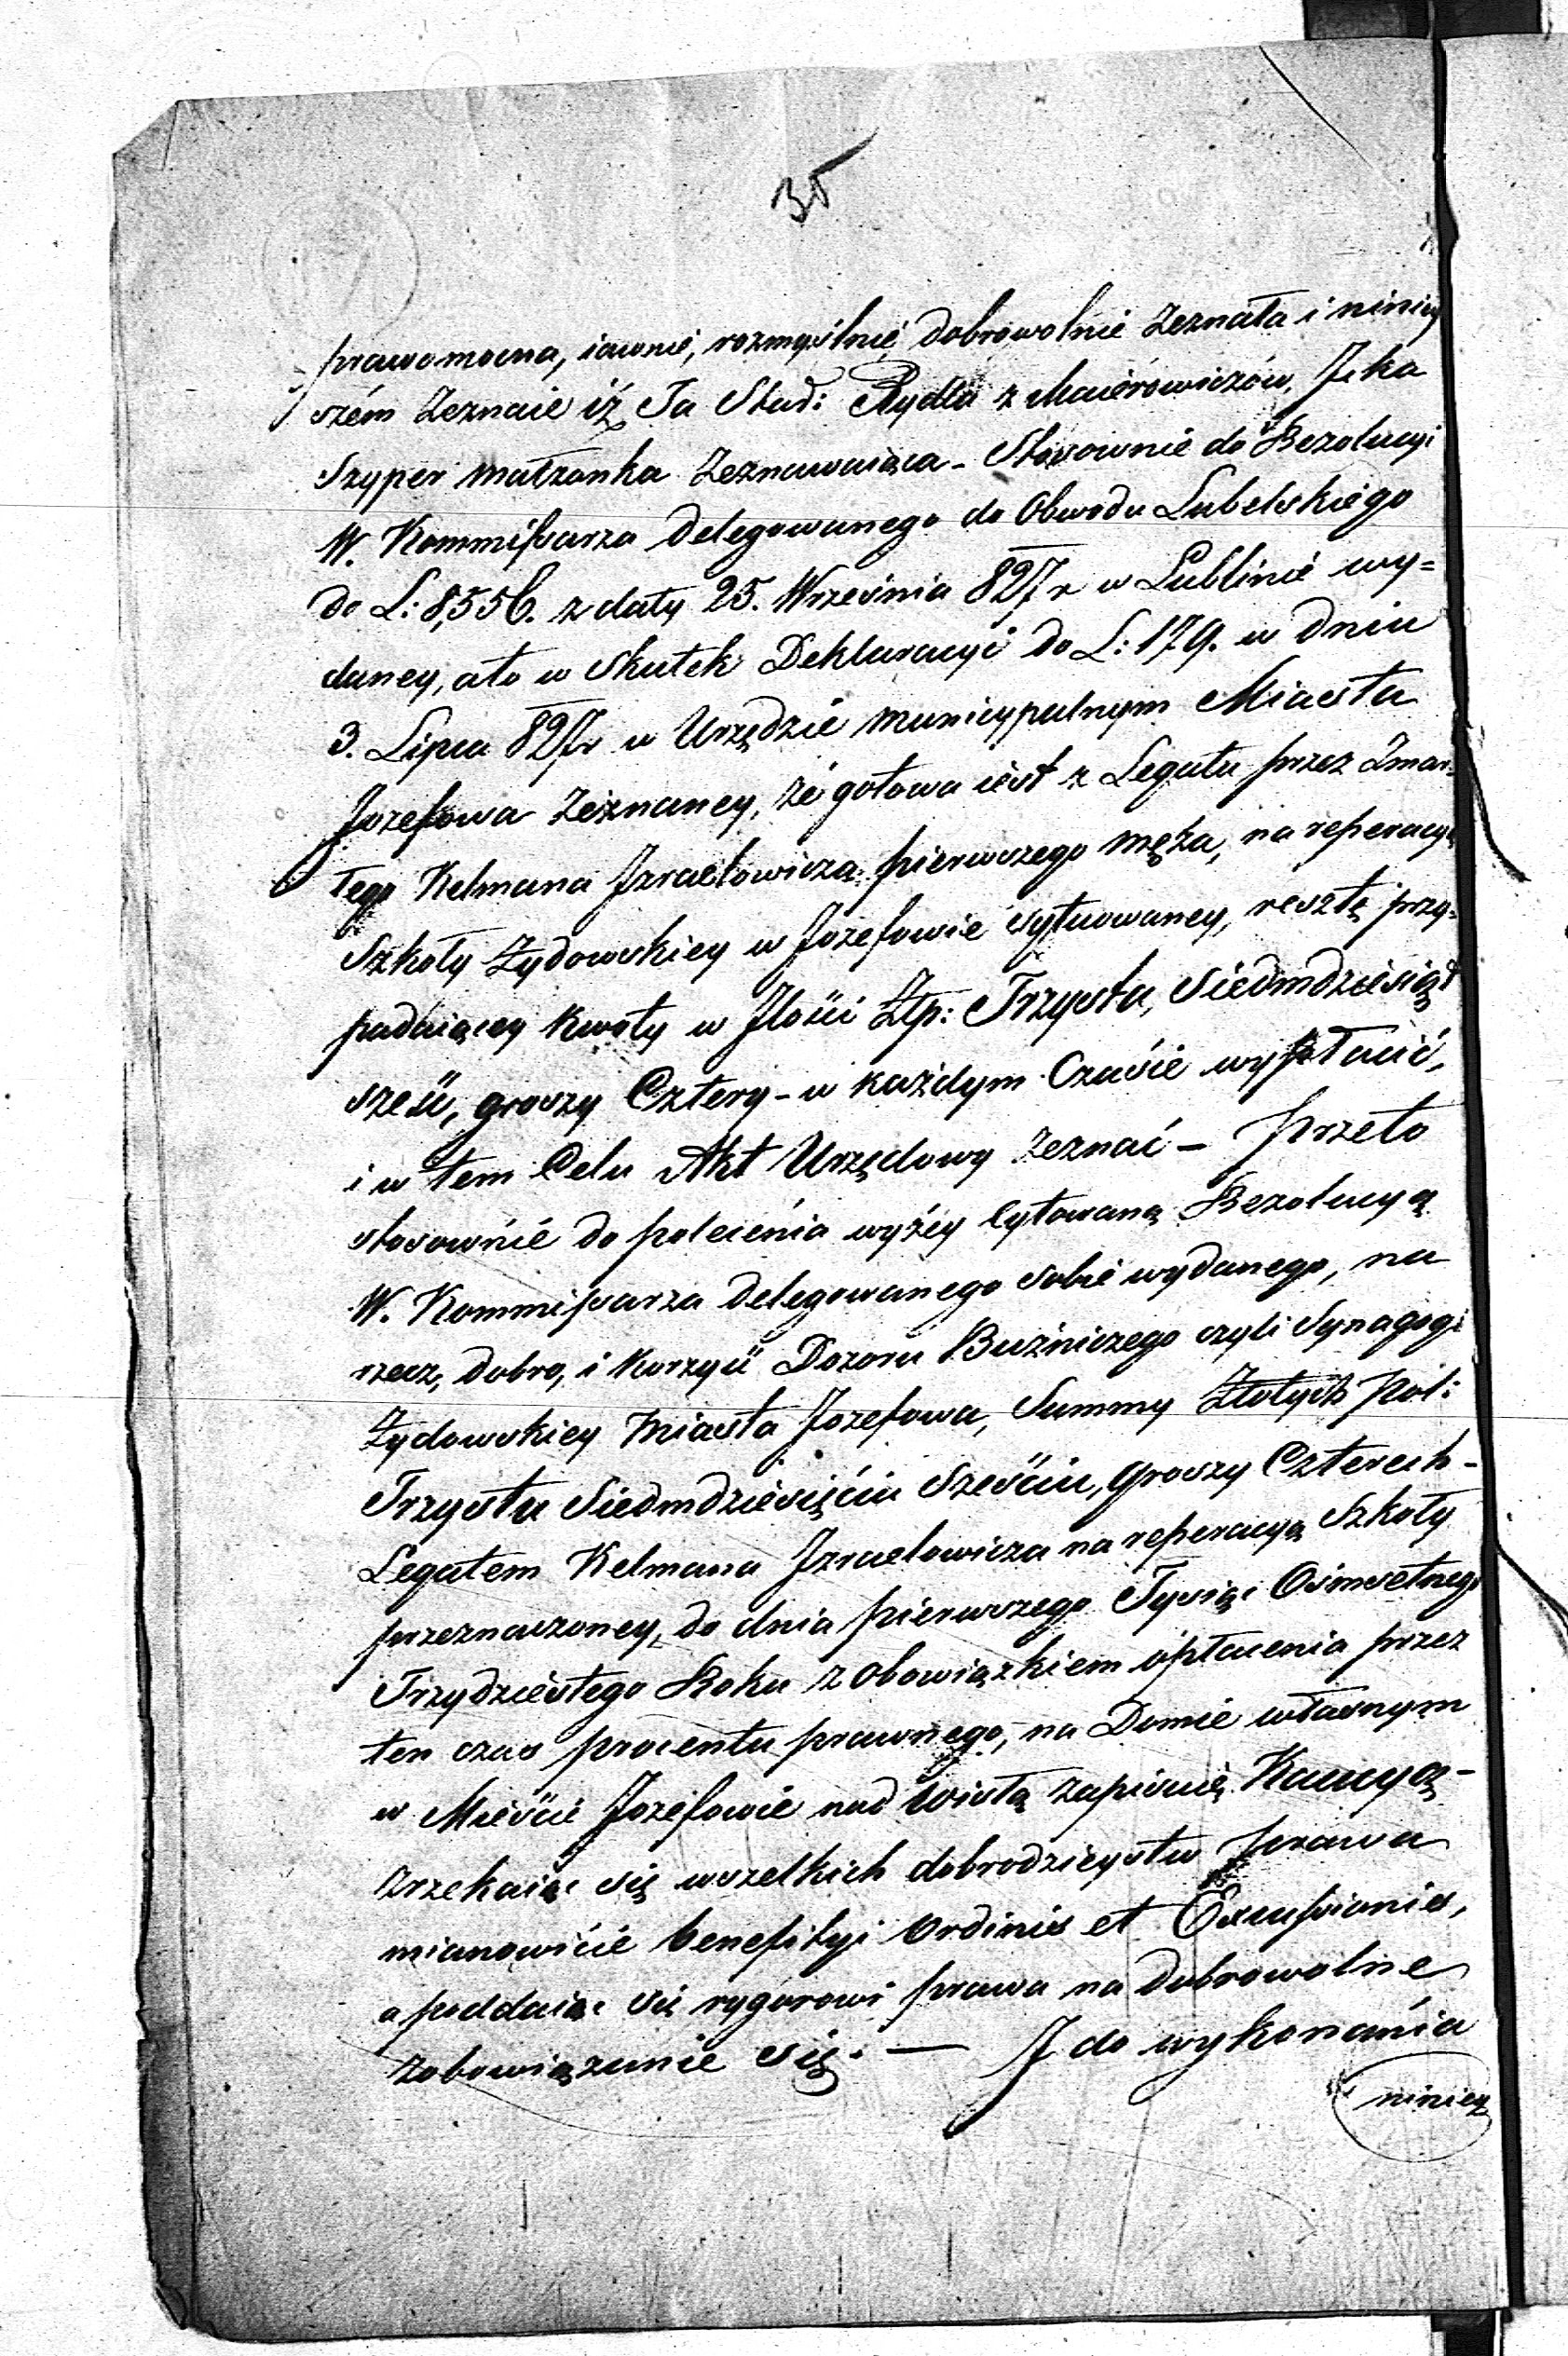 35
prawomocna, iawnie, rozmyślnie dobrowolnie zeznała i niniey
szém Zeznaie iż Ta Stad: Rydla z Maierowiczów, Jcka
Szyper małżonka Zeznawaiąca - Stosownie do Rezolucyi
W. Kommissarza Delegowanego do Obwodu Lubelskiego
do L: 8,556. z daty 25. Września 827 r w Lublinie wy=
daney, ato w Skutek Deklaracyi do L: 179. w dniu
3. Lipca 827r w Urzędzie Municypalnym Miasta
Jozefowa Zeznaney, że gotowa iest z Legatu przez Zmar-
łego Kelmana Jzraelowicza pierwszego męża, na reperacyą
Szkoły Żydowskiey w Jozefowie sytuowaney, resztę przy=
padaiącey kwoty w Jlości Złp: Trzysta, Siedmdziesiąt
sześć, groszy Cztery - w każdym Czasie wypłacić,
i w tem Celu Akt Urzędowy zeznać - przeto
stosownie do polecenia wyżey Cytowaną Rezolucyą
W. Kommissarza Delegowanego sobie wydanego, na
rzecz, dobro, i korzyść Dozoru Buźniczego czyli Synagogi
Żydowskiey Miasta Jozefowa, Summy Złotych Pol:
Trzystu Siedmdziesięciu Sześciu, groszy Czterech -
Legatem Kelmana Jzraelowicza na reperacyą Szkoły
przeznaczoney, do dnia pierwszego Tysiąc Osmsetnego
Trzydziestego Roku z obowiązkiem opłacenia przez
ten czas procentu prawnego, na Domie własnym
w Mieście Jozefowie nad Wisłą zapisuię Kaucyą -
zrzekaiąc się wszelkich dobrodzieystw prawa
mianowicie benefityi Ordinis et Excussionis,
a poddaiąc się rygorowi prawa na dobrowolne
zobowiązanie się. — J do wykonania
niniey